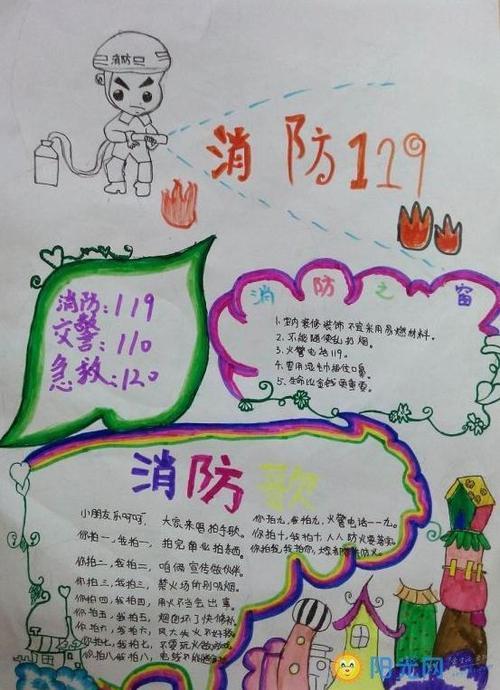 消防
消防119
消防:119
交警:110
急救:120
消防之窗
1.室内装修装饰不宜采用易燃材料。
2.不能随便乱扔烟。
3.火警电话119。
4.要用湿毛巾捂住口鼻。
5.生命比金钱更重要。
消防歌
小朋友乐呵呵, 大家来唱拍手歌。
你拍一,我拍一,
你拍二,我拍二, 咱俩宣传做伙伴。
你拍三,我拍三, 禁火场所别吸烟。
你拍四,我拍四, 用火不当会出事。
你拍五,我拍五, 烟囱坏了快修补。
你拍六,我拍六, 风大放火不好救。
你拍七,我拍七,
你拍八,我拍八,
你拍九,我拍九,火警电话一一九。
你拍十,我拍十,人人防火要落实。
你拍我,我拍你,
阳光网